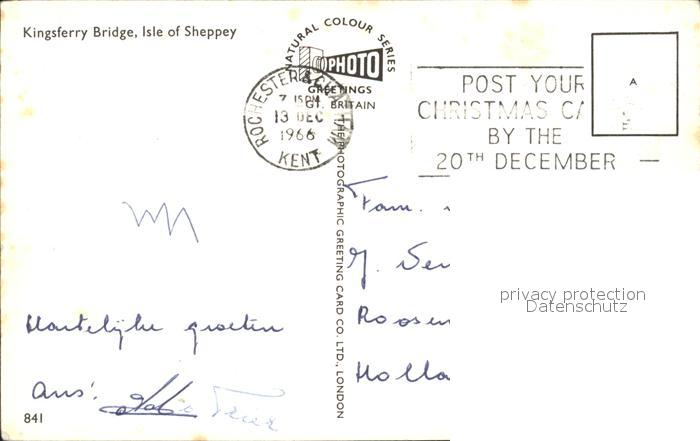 Kingsferry Bridge, Isle of Sheppey
NATURAL COLOUR SERIES
PHOTO
GREETINGS
GT. BRITAIN
ROCHESTER & CHATHAM
7 15PM
13 DEC
1966
KENT
POST YOUR
CHRISTMAS CA
BY THE
20TH DECEMBER
A
THE PHOTOGRAPHIC GREETING CARD CO. LTD., LONDON
Fam.
Roosen
Holla
privacy protection
Datenschutz
Hartelijke groeten
Ans:
841